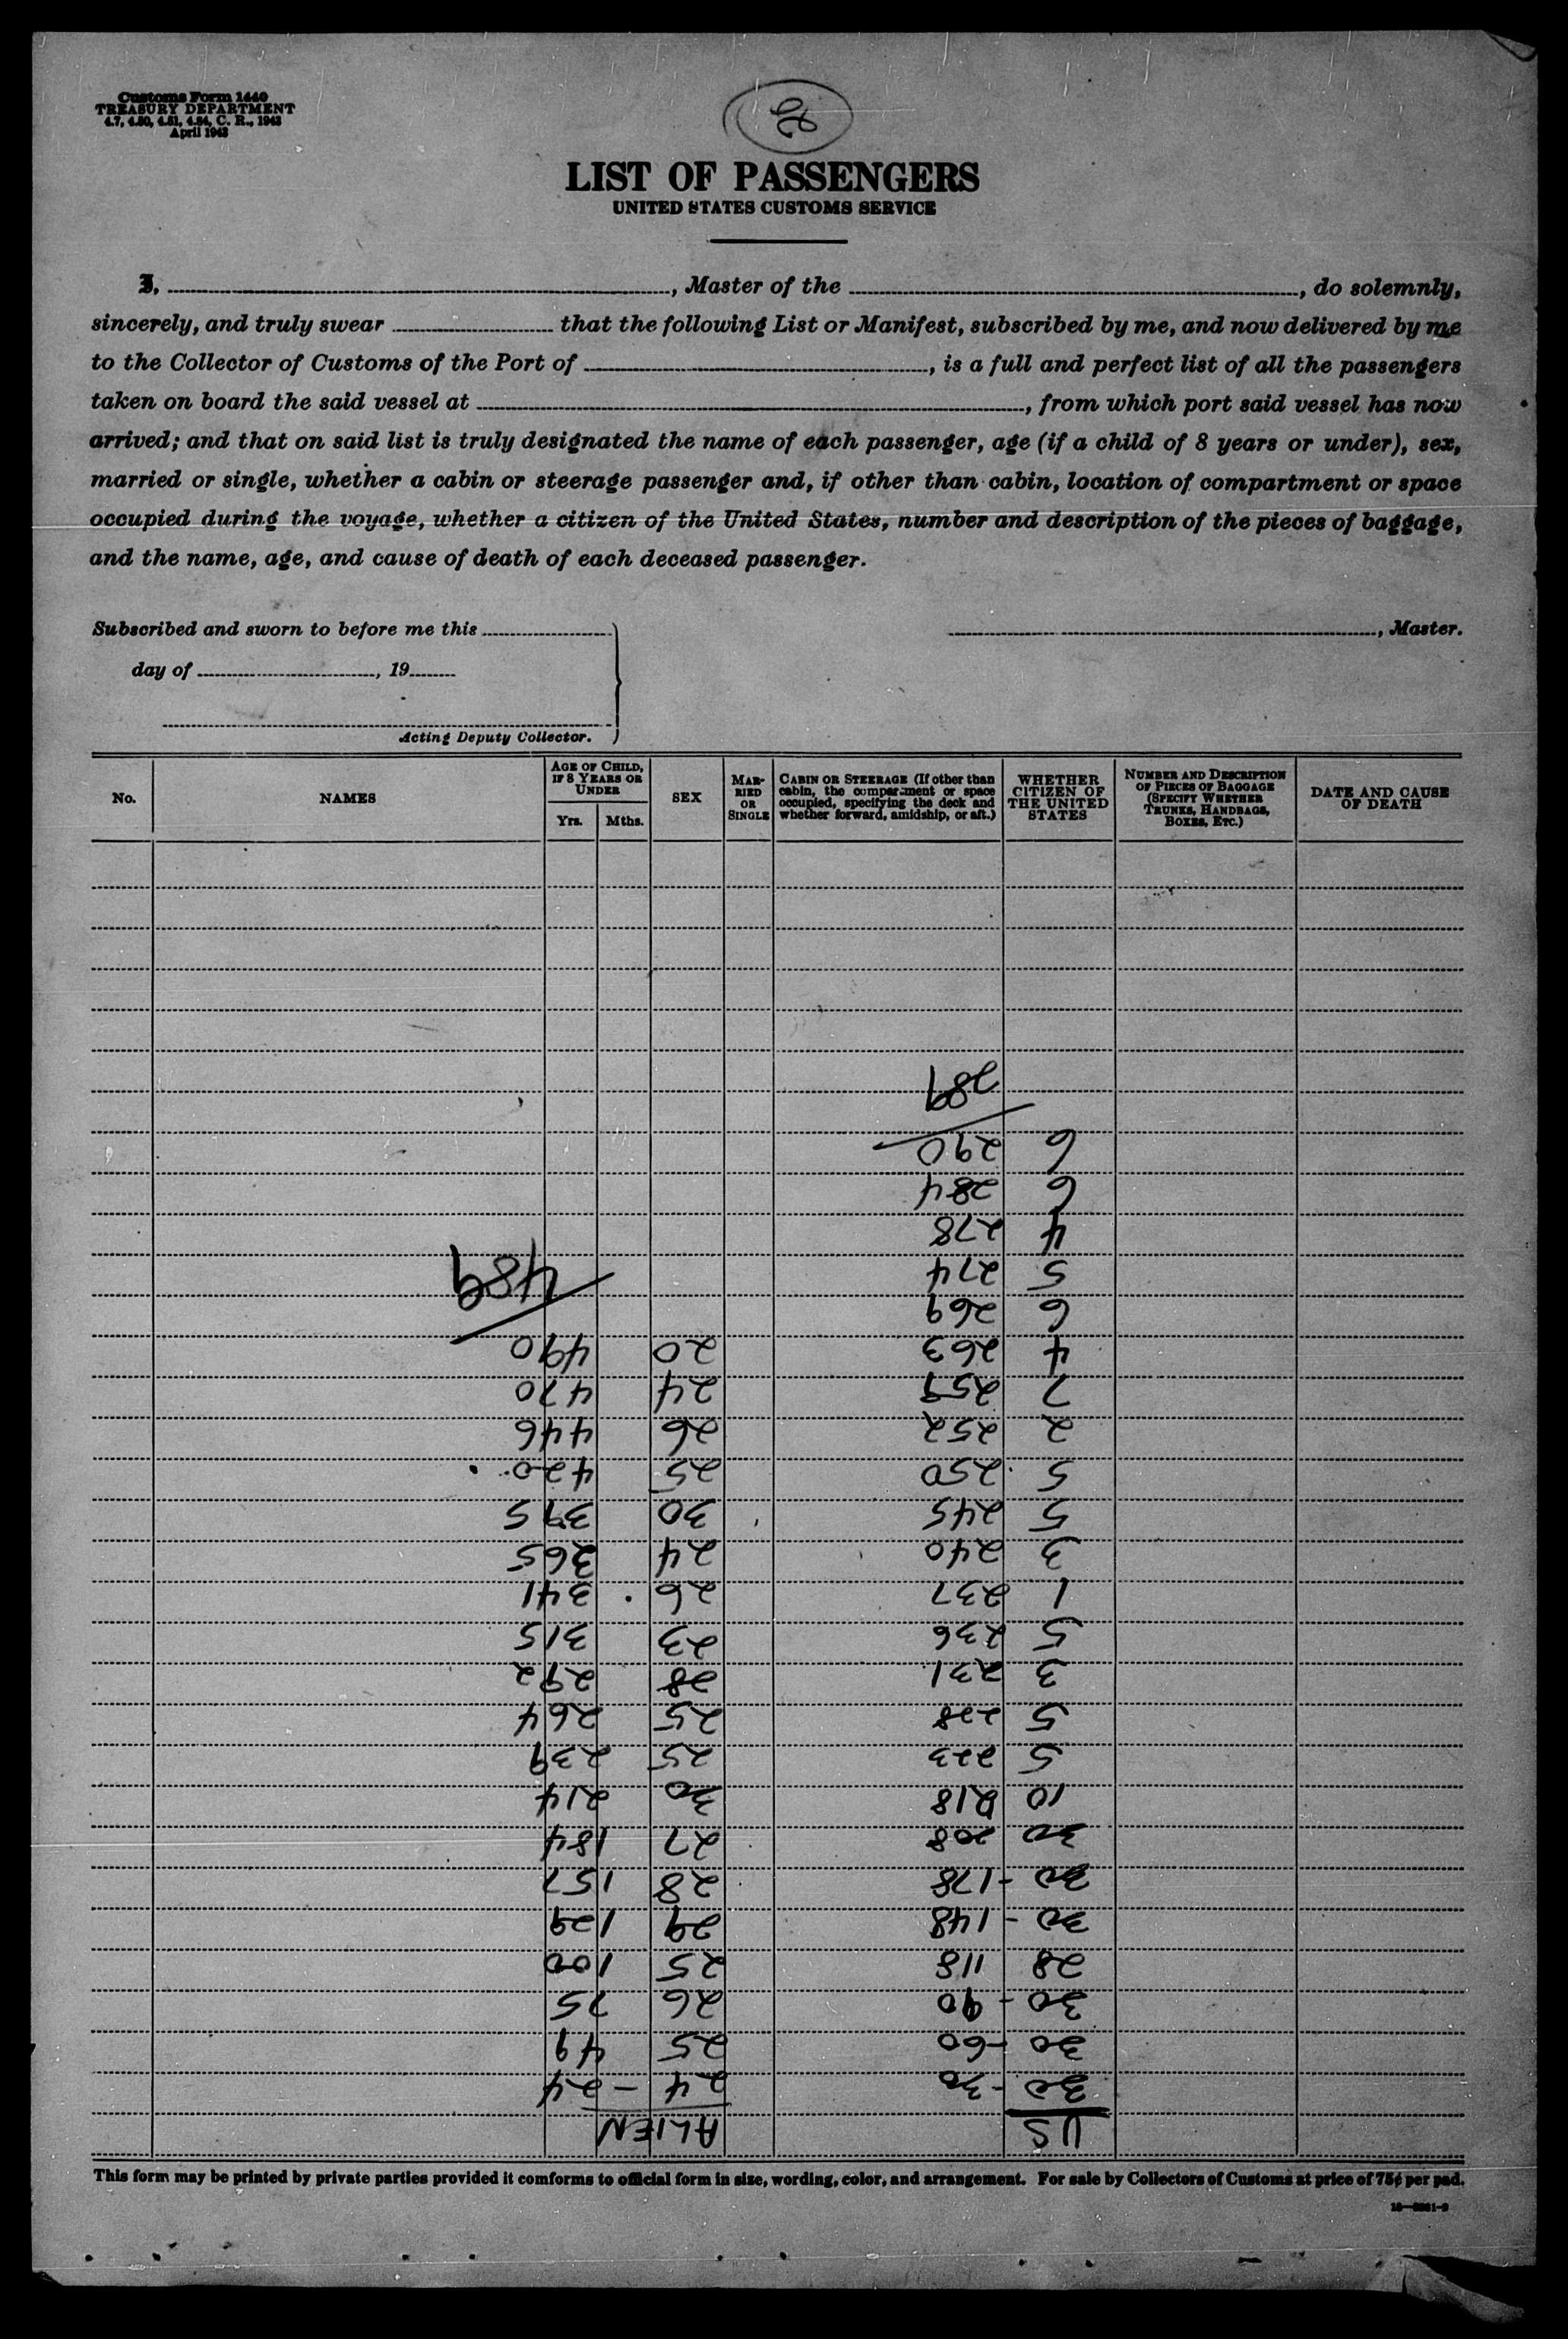 Customs Form 1440
TREASURY DEPARTMENT
4.7, 4.50, 4.51, 4.54, C. R., 1943
April 1943
LIST OF PASSENGERS
UNITED STATES CUSTOMS SERVICE
I, , Master of the , do solemnly,
sincerely, and truly swear that the following List or Manifest, subscribed by me, and now delivered by me
to the Collector of Customs of the Port of , is a full and perfect list of all the passengers
taken on board the said vessel at , from which port said vessel has now
arrived; and that on said list is truly designated the name of each passenger, age (if a child of 8 years or under), sex,
married or single, whether a cabin or steerage passenger and, if other than cabin, location of compartment or space
occupied during the voyage, whether a citizen of the United States, number and description of the pieces of baggage,
and the name, age, and cause of death of each deceased passenger.
Subscribed and sworn to before me this
, Master.
day of , 19
Acting Deputy Collector.
No.
NAMES
AGE OF CHILD, IF 8 YEARS OR UNDER
Yrs. Mths.
SEX
MARRIED OR SINGLE
CABIN OR STEERAGE (If other than cabin, the compartment or space occupied, specifying the deck and whether forward, amidship, or aft.)
WHETHER CITIZEN OF THE UNITED STATES
NUMBER AND DESCRIPTION OF PIECES OF BAGGAGE (SPECIFY WHETHER TRUNKS, HANDBAGS, BOXES, ETC.)
DATE AND CAUSE OF DEATH
US ALIEN
30 - 30 24 - 24
30 - 60 25 49
30 - 90 26 75
28 118 25 100
30 - 148 29 129
30 - 178 28 157
30 208 27 184
10 218 30 214
5 223 25 239
5 228 25 264
3 231 28 292
5 236 23 315
1 237 26 341
3 240 24 365
5 245 30 395
5 250 25 420
2 252 26 446
7 259 24 470
4 263 20 490
6 269
5 274 489
4 278
6 284
6 290
289
This form may be printed by private parties provided it comforms to official form in size, wording, color, and arrangement. For sale by Collectors of Customs at price of 75¢ per pad.